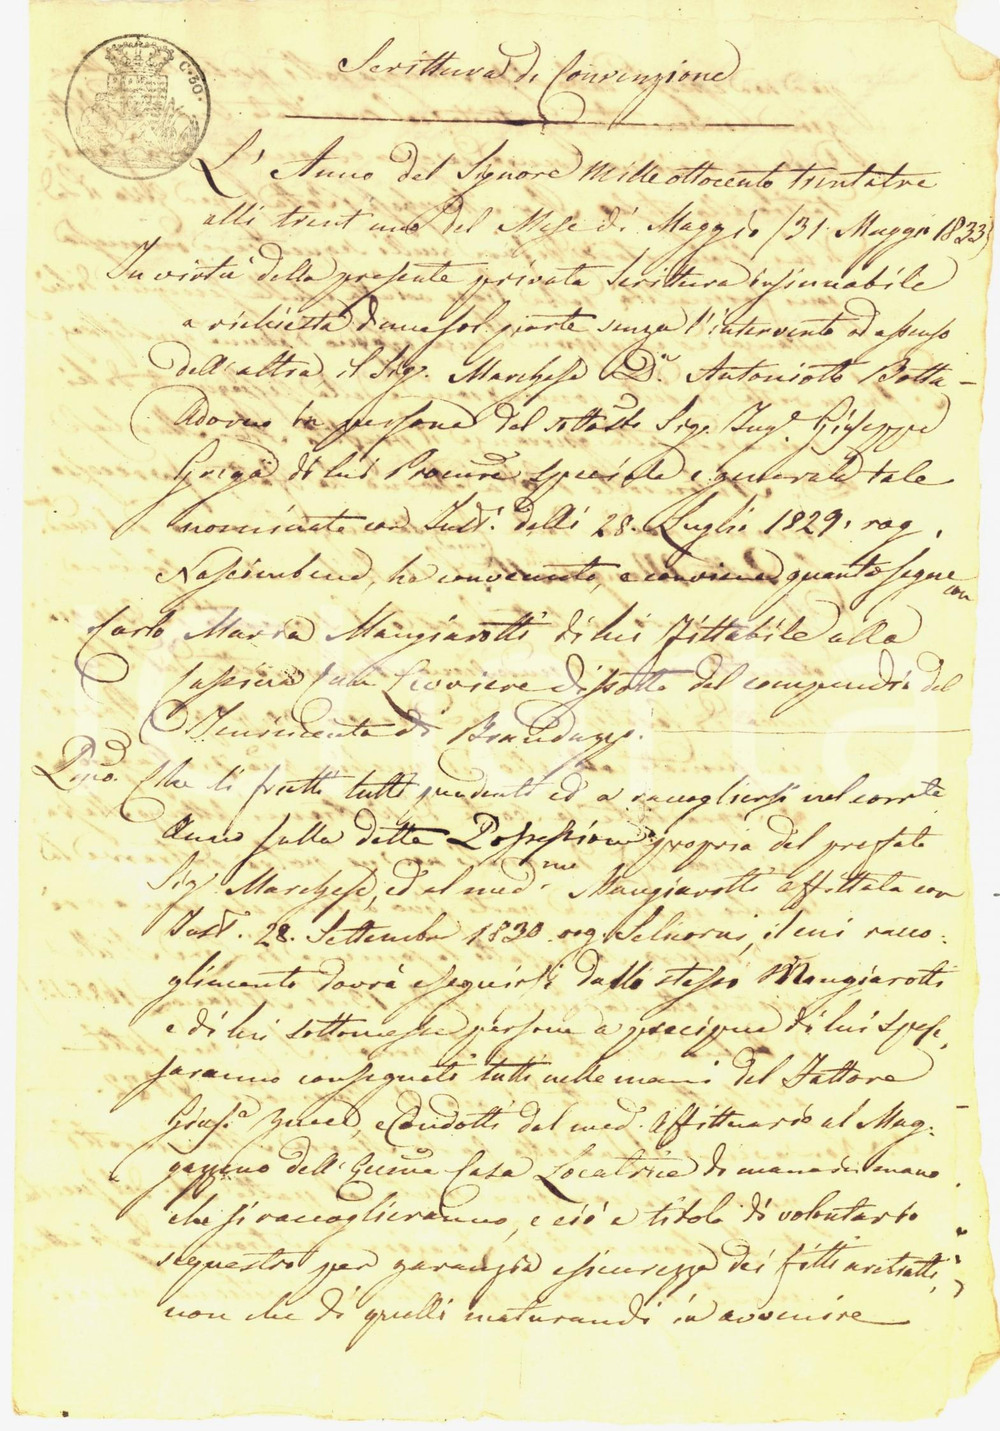 C. 30.
Scrittura di Convenzione
L' Anno del Signore Mille ottocento trentatre
alli trent'uno del Mese di Maggio (31. Maggio 1833)
In virtù della presente privata Scrittura insinuabile
a richiesta d'una sol parte senza l'intervento ed assenso
dell'altra, il Sig. Marchese D. Antoniotto Botta-
Adorno in persona del Sig. Ing. Giuseppe
di lui speciale e generale tale
nominato con Instr. delli 28. Luglio 1829. rog.
Nascimbene, ha convenuto, e conviene quanto segue
con
Carlo Maria Mangiarotti di lui Fittabile alla
Cassina del compendio del
Tenimento di Branduzzo.
Pmo. Che li frutti tutti pendenti ed a raccogliersi nel corrte
Anno sulla detta Possessione propria del prefato
Sig. Marchese, ed al med.mo Mangiarotti affittata con
Instr. 28. Settembre 1830. rog. il cui racco-
glimento dovrà eseguirsi dallo stesso Mangiarotti
e di lui sottomesse persone a precipue di lui spese,
saranno consegnati tutti nelle mani del Fattore
e condotti dal med. Affittuario al Mag-
gazzeno dell' Casa Locatrice di mano in mano
che si raccoglieranno, e ciò a titolo di volontario
sequestro per garanzia e sicurezza dei fitti arretrati,
non che di quelli maturandi in avvenire